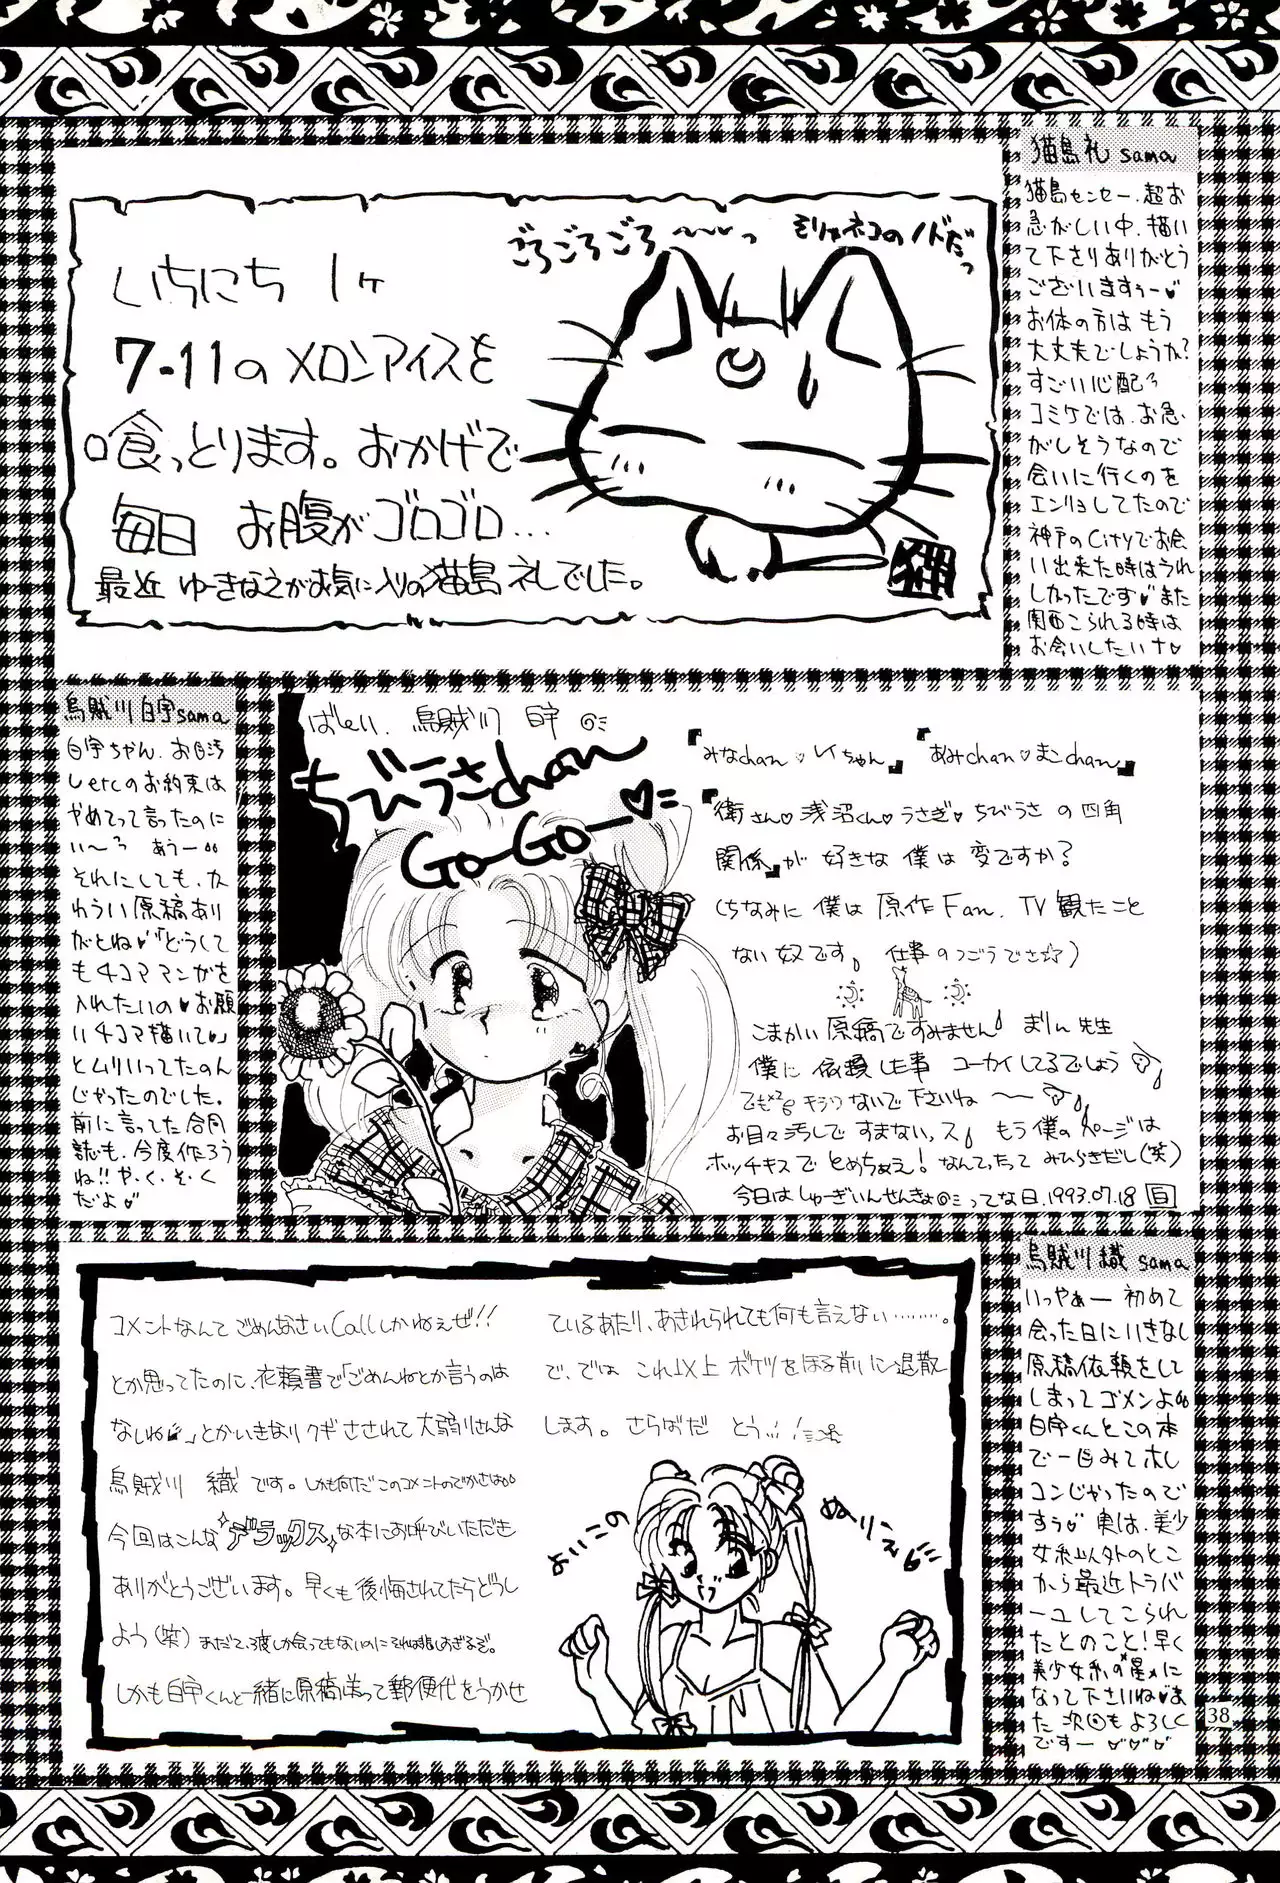 猫島礼 sama
猫島センセー、超お
急がしい中、描い
て下さりありがとう
ございますぅー♥
お体の方は もう
大丈夫でしょうか?
すごい心配
コミケでは、お急
がしそうなので
会いに行くのを
エンリョしてたので
神戸のCityでお会
い出来た時はうれ
しかったです♥また
関西こられる時は
お会いしたいナ♥
ごろごろごろ〜〜〜っ
そりゃネコのノドだっ
いちにち 1ヶ
7-11の メロンアイスを
喰っとります。おかげで
毎日 お腹がゴロゴロ...
最近 ゆーきなえがお気に入りの猫島 礼でした。
猫
烏賊川 白宇sama
白宇ちゃん、お目汚
しetcのお約束は
やめてって言ったのに
い〜 あぅー
それにしても、か
わうい原稿あり
がとね♥「どうして
も4コママンガを
入れたいの♥お願
い4コマ描いて♥」
とムリいってたのん
じゃったのでした。
前に言ってた合同
誌も、今度作ろう
ね!!や・く・そ・く
だよ♥
ばーい、烏賊川 白宇
ちびうさchan
Go-Go-♥
『みなchan♥レイちゃん』 『あみchan♥まこchan』
『衛さん♥浅沼くん♥うさぎ♥ちびうさ の四角
関係』が 好きな 僕は 変ですか?
(ちなみに 僕は 原作Fan、TV観たこと
ない奴です。 仕事のつごうでさ)
こまかい原稿ですみません。 まりん先生
僕に 依頼した事 コーカイしてるでしょう
でも キラワないで下さいね 〜
お目々汚しで すまないっス もう僕のページは
ホッチキスで とめちゃえ! なんてったって みひらきだし(笑)
今日は しゅーぎいんせんきょってな日、1993.07.18 白
烏賊川織 sama
いっやぁー 初めて
会った日にいきなし
原稿依頼をして
しまってゴメンよ
白宇くんとこの本
で一目みてホレ
コンじゃったので
すぅ♥ 実は、美少
女系以外のとこ
から最近トラバ
ーユしてこられ
たとのこと!早く
美少女系の"星"に
なって下さいね♥ま
た次回もよろしく
ですー ♥♥♥
コメントなんて ごめんなさいCallしかねぇぜ!!
とか思ってたのに、依頼書で「ごめんねとか言うのは
なしね」とかいきなりクギさされて大弱りさんな
烏賊川 織です。しかも何だこのコメントのでかさは
今回はこんな デラックス な本にお呼びいただき
ありがとうございます。早くも後悔されてたらどうし
よう(笑) まだて、渡しか会ってもないのにそれは悲しすぎるぞ。
しかも白宇くんと一緒に原稿送って郵便代をうかせ
ているあたり、あきれられても何も言えない………。
で、では これ以上 ボケツをほる前に退散
します。さらばだ とうっ
よいこの
ぬりえ
38